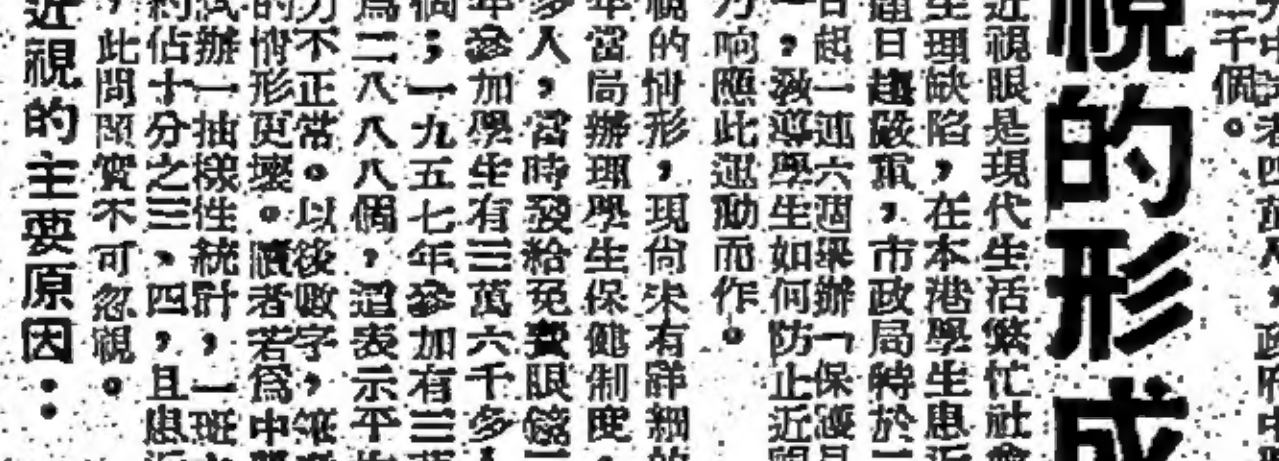 千個。
的形
近視眼是現代生活繁忙社會
生理缺陷，在本港學生患近
日趨嚴重，市政局特於
日起一連六週舉辦「保護
，教導學生如何防止近視
力响應此運動而作。
視的情形，現尙未有詳細的
年當局辦理學生保健制度，
多人，當時發給免費眼鏡
年參加學生有三萬六千多
個；一九五七年參加有三萬
爲二八八八個，這表示平均
力不正常。以後數字，
的情形更壞。讀者若爲中
試辦一抽樣性統計，一班
約佔十分之三、四，且患近
，此問題實不可忽視。
近視的主要原因：